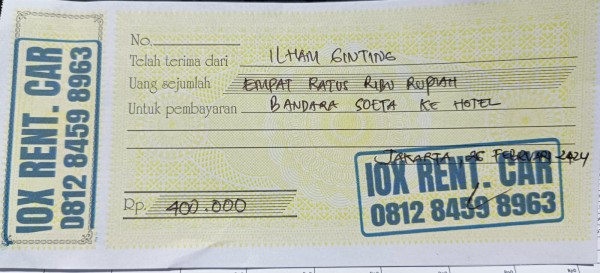 IOX RENT. CAR
0812 8459 8963
No.
Telah terima dari ILHAM GINTING
Uang sejumlah EMPAT RATUS RIBU RUPIAH
Untuk pembayaran BANDARA SOETA KE HOTEL
JAKARTA 26 FEBRUARI 2024
IOX RENT. CAR
0812 8459 8963
Rp. 400.000